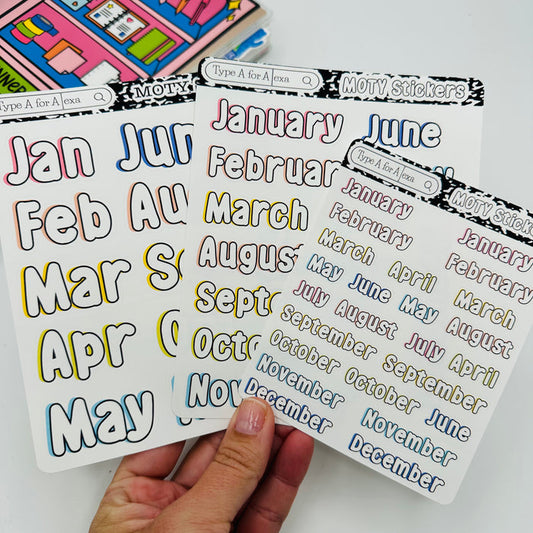 Type A for Alexa
MOTY
Jan
Jun
Feb
Au
Mar
Apr
May
Type A for Alexa
MOTY Stickers
January
June
February
March
August
September
October
Nov
Type A for Alexa
MOTY Stickers
January
February
March
April
May
June
May
July
August
September
October
October
November
December
January
February
March
August
July
April
September
June
November
December